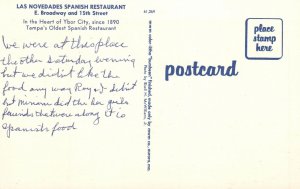 LAS NOVEDADES SPANISH RESTAURANT
E. Broadway and 15th Street
In the Heart of Ybor City, since 1890
Tampa's Oldest Spanish Restaurant
We were at this place
the other Saturday evening
but we didn't like the
food any way Roy & I didn't
but
friends that was along it is
Spanish food
postcard
place
stamp
here